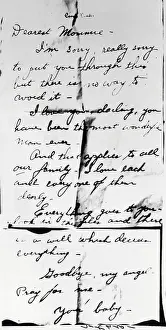 Dearest Mommie -
I'm sorry, really sorry
to put you through this
but there is no way to
avoid it -
I love you darling, you
have been the most wonderful
Mom ever
And this applies to all
our family. I love each
and every one of them
dearly.
Everything goes to you
look in and there
is a will which decrees
everything -
Goodbye, my angel
Pray for me -
Your baby -